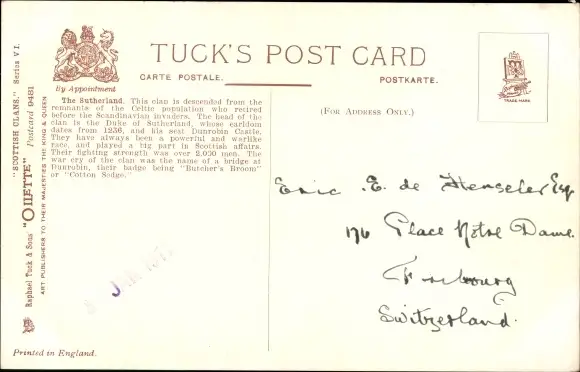 TUCK'S POST CARD
CARTE POSTALE.
POSTKARTE.
By Appointment
(FOR ADDRESS ONLY.)
TRADE MARK
The Sutherland. This clan is descended from the
remnants of the Celtic population who retired
before the Scandinavian invaders. The head of the
clan is the Duke of Sutherland, whose earldom
dates from 1236, and his seat Dunrobin Castle.
They have always been a powerful and warlike
race, and played a big part in Scottish affairs.
Their fighting strength was over 2,000 men. The
war cry of the clan was the name of a bridge at
Dunrobin, their badge being "Butcher's Broom"
or "Cotton Sedge."
Raphael Tuck & Sons' "OILETTE" Postcard 9481
"SCOTTISH CLANS." Series VI.
ART PUBLISHERS TO THEIR MAJESTIES THE KING & QUEEN
Printed in England.
Eric E. de Henseler Esq
176 Place Notre Dame.
Freibourg
Switzerland.